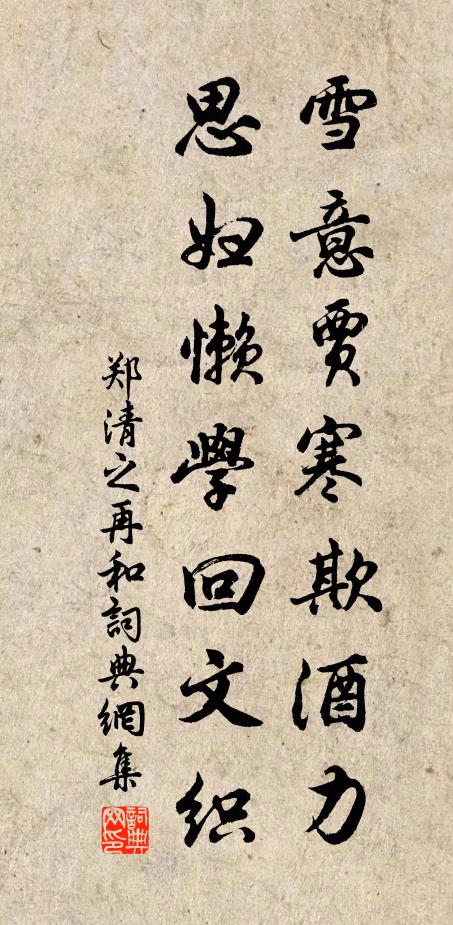 雪意贾寒欺酒力
思妇懒学回文织
郑清之再和词典网集
詞典网印